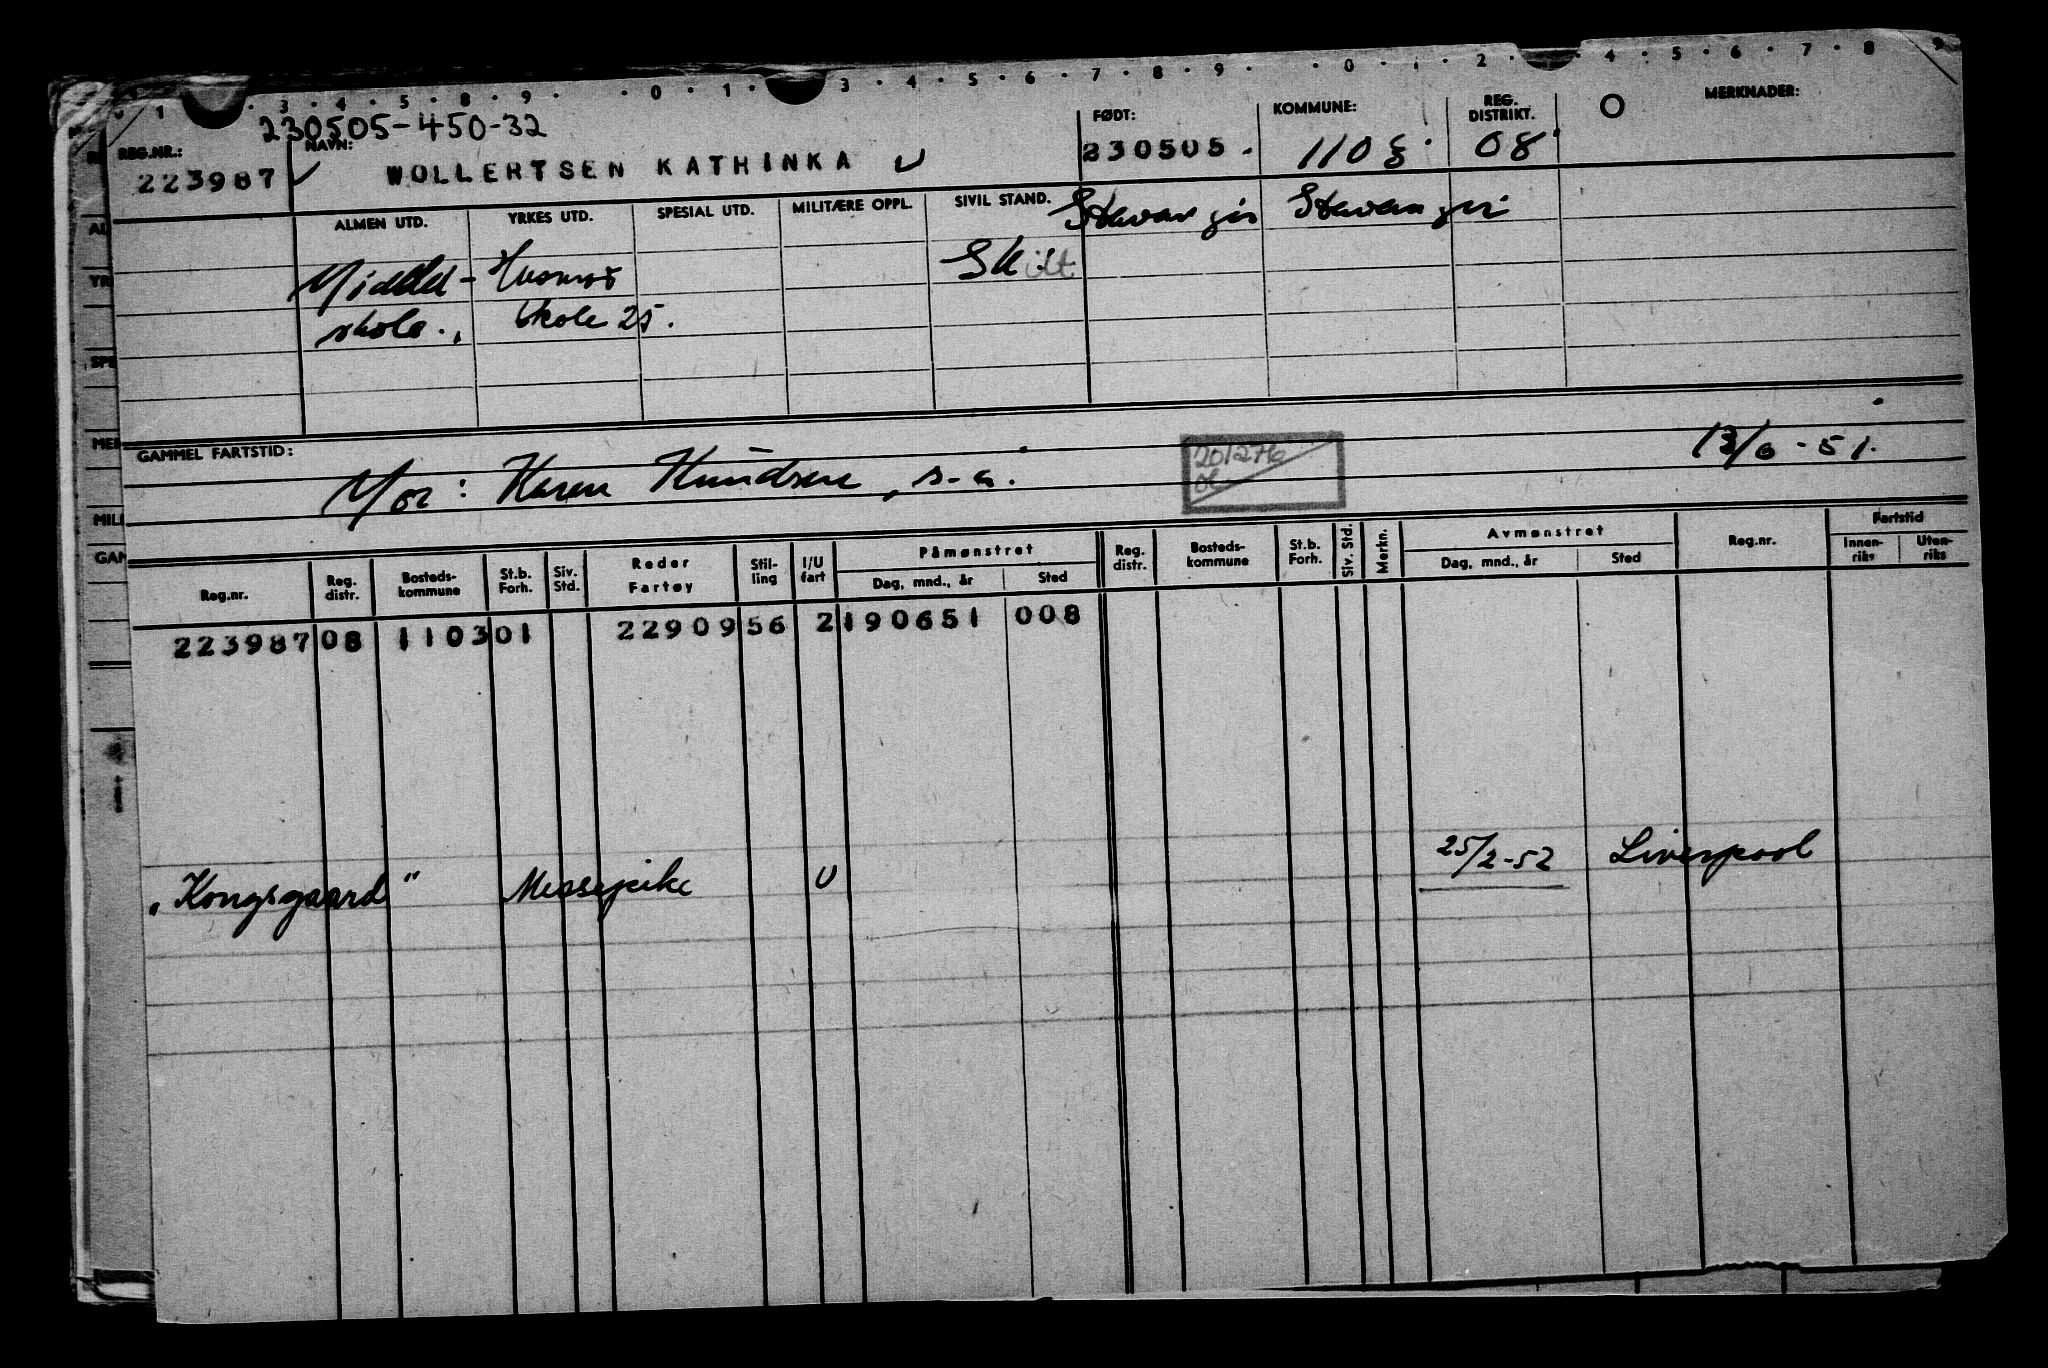 1 3 4 5 8 9 0 1 3 4 5 6 7 8 9 0 1 2 4 5 6 7 8 9
230505-450-32
REG.NR.: NAVN: FØDT: KOMMUNE: REG. DISTRIKT. MERKNADER:
223987 WOLLERTSEN KATHINKA 230505. 08
ALMEN UTD. YRKES UTD. SPESIAL UTD. MILITÆRE OPPL. SIVIL STAND. Stavanger Stavanger
Middel- Husmor Skilt
skole. skole 25.
GAMMEL FARTSTID: 13/6-51.
Mor: Karen Knudsen, s.a.
201276
Reg.nr. Reg. distr. Bosteds-kommune St.b. Forh. Siv. Std. Reder Fartøy Stil-ling I/U fart Påmønstret Dag, mnd., år Sted Reg. distr. Bosteds-kommune St.b. Forh. Siv. Std. Merkn. Avmønstret Dag, mnd., år Sted Reg.nr. Fartstid Innen-riks Uten-riks
223987 08 1103 01 22909 56 2 190651 008
25/2-52 Liverpool
"Kongsgaard" Messepike U